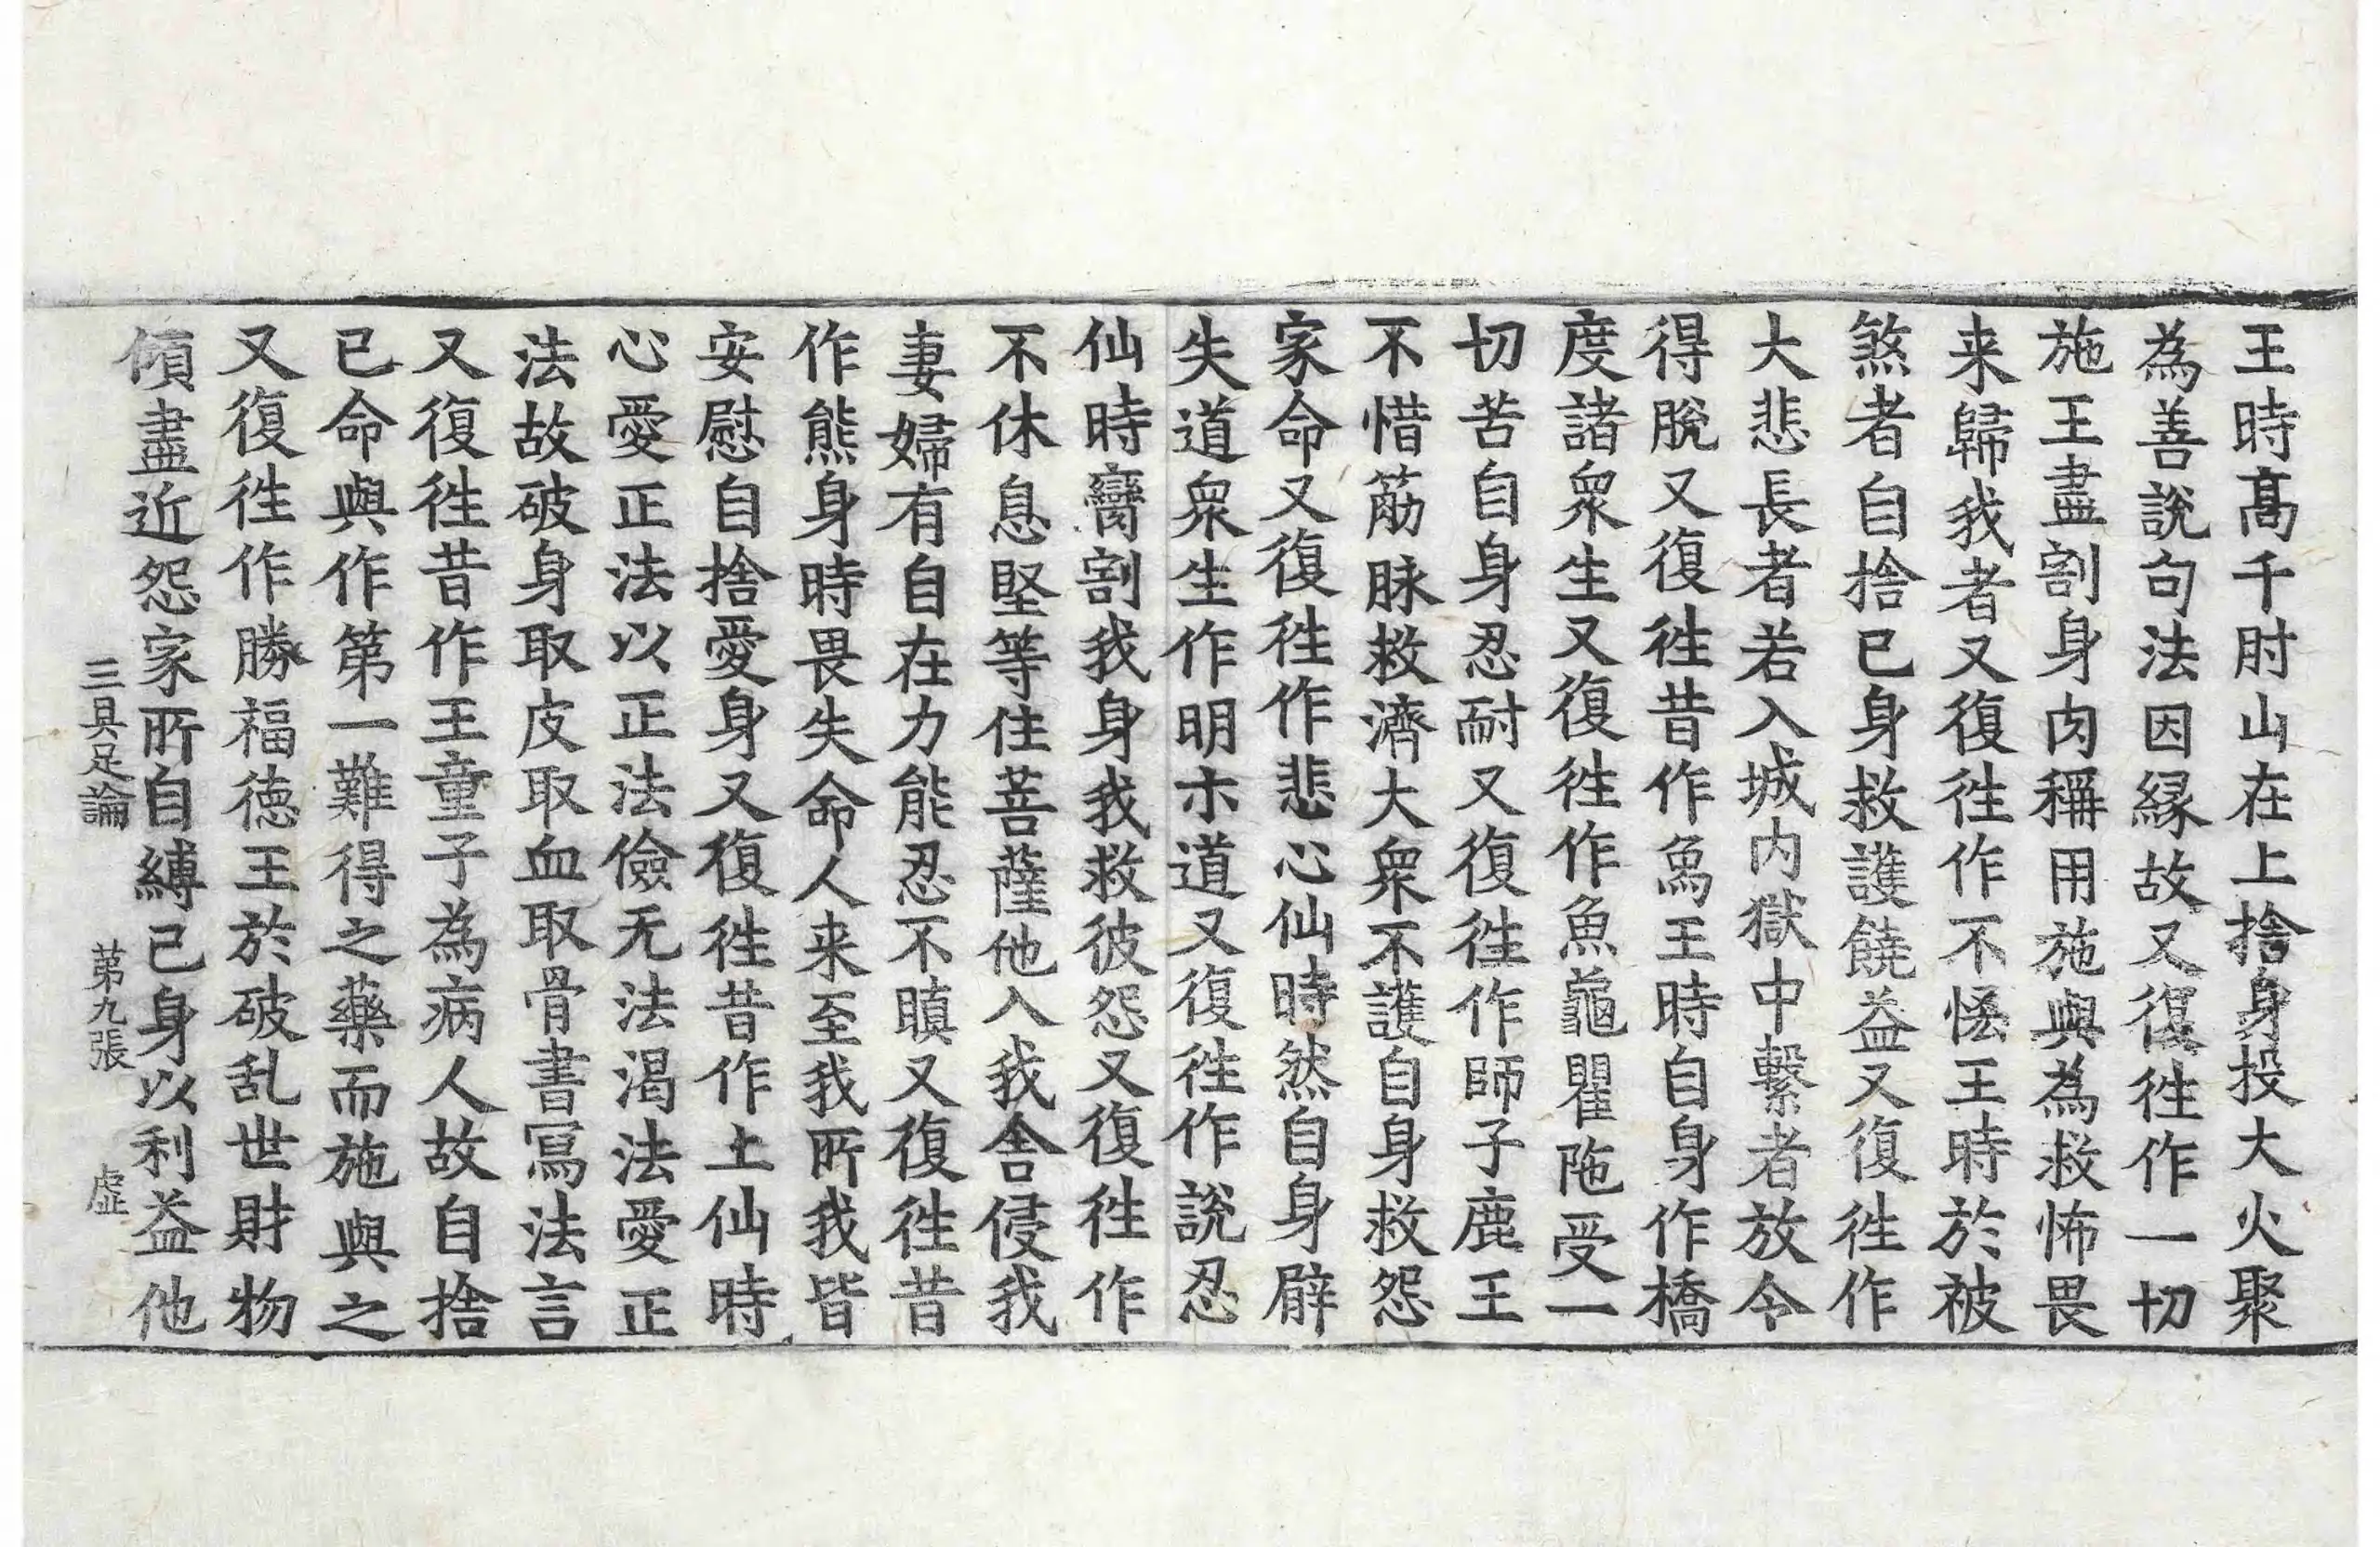 王時髙千肘山在上捨身投大火聚
為善說句法因縁故又復徃作一切
施王盡割身肉稱用施與為救怖畏
来歸我者又復徃作不恡王時於被
煞者自捨己身救護饒益又復徃作
大悲長者若入城内獄中繫者放令
得脫又復徃昔作烏王時自身作橋
度諸衆生又復徃作魚龜瞿陁受一
切苦自身忍耐又復徃作師子鹿王
不惜筋脉救濟大衆不護自身救怨
家命又復徃作悲心仙時然自身臂
失道衆生作明示道又復徃作說忍
仙時臠割我身我救彼怨又復徃作
不休息堅等住菩薩他入我舍侵我
妻婦有自在力能忍不瞋又復徃昔
作熊身時畏失命人来至我所我皆
安慰自捨愛身又復徃昔作土仙時
心愛正法以正法儉无法渴法愛正
法故破身取皮取血取骨書寫法言
又復徃昔作王童子為病人故自捨
己命與作第一難得之藥而施與之
又復徃作勝福徳王於破乱世財物
傾盡近怨家所自縛己身以利益他
三具足論 苐九張 虛